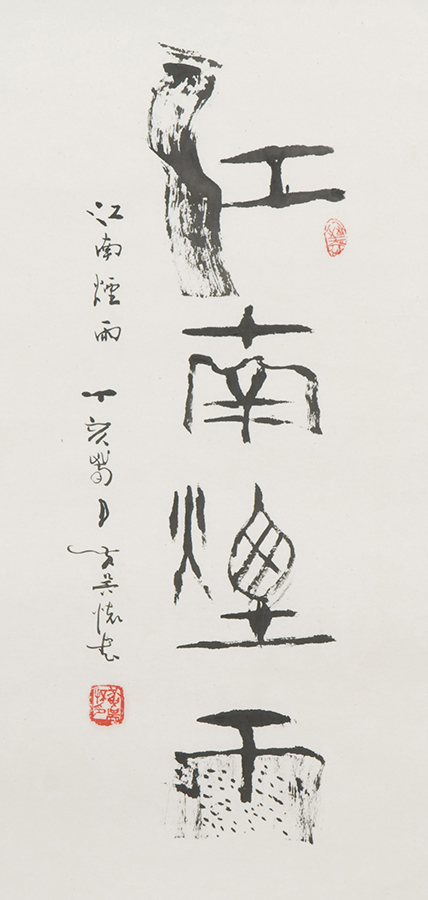 江南煙雨
江南煙雨
丁亥
月
書